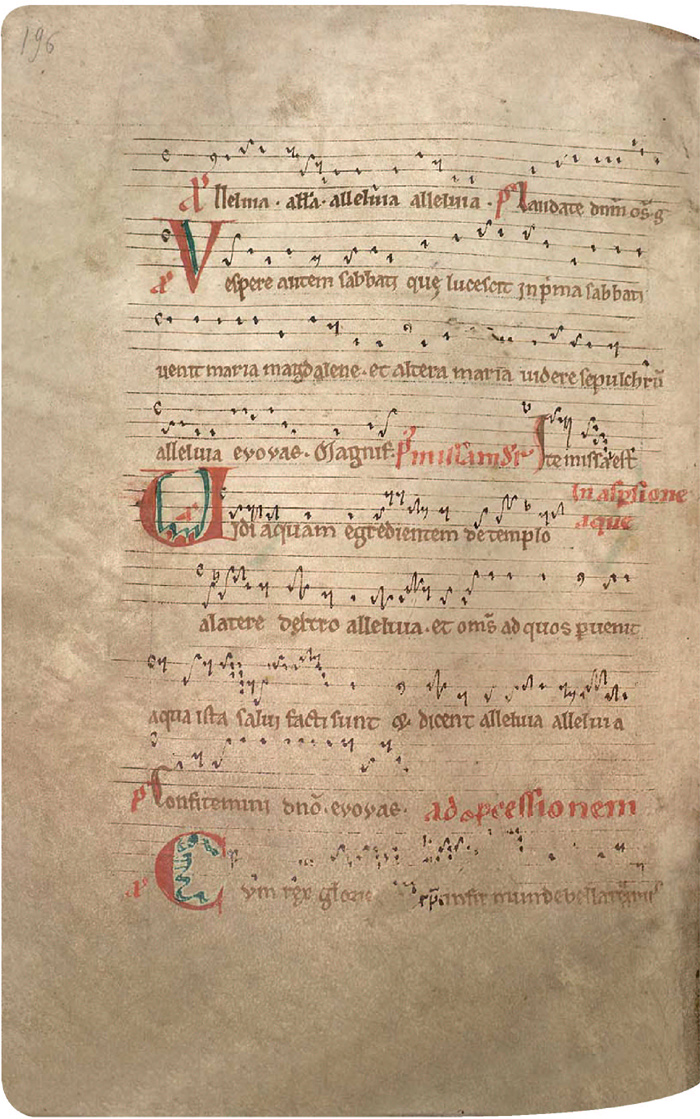 196
Alleluia · all'a · alleluia alleluia · ps Laudate dnm os g
a Vespere autem sabbati quę lucescit in pma sabbati
uenit maria magdalene · et altera maria uidere sepulchrū
alleluia evovae · Magnif. Ite missa est
In aspsione
aque
a Uidi aquam egredientem de templo
a latere dextro alleluia · et oms ad quos puenit
aqua ista salui facti sunt & dicent alleluia alleluia
ps Confitemini dnō · evovae · ad pcessionem
a Cum rex glorie